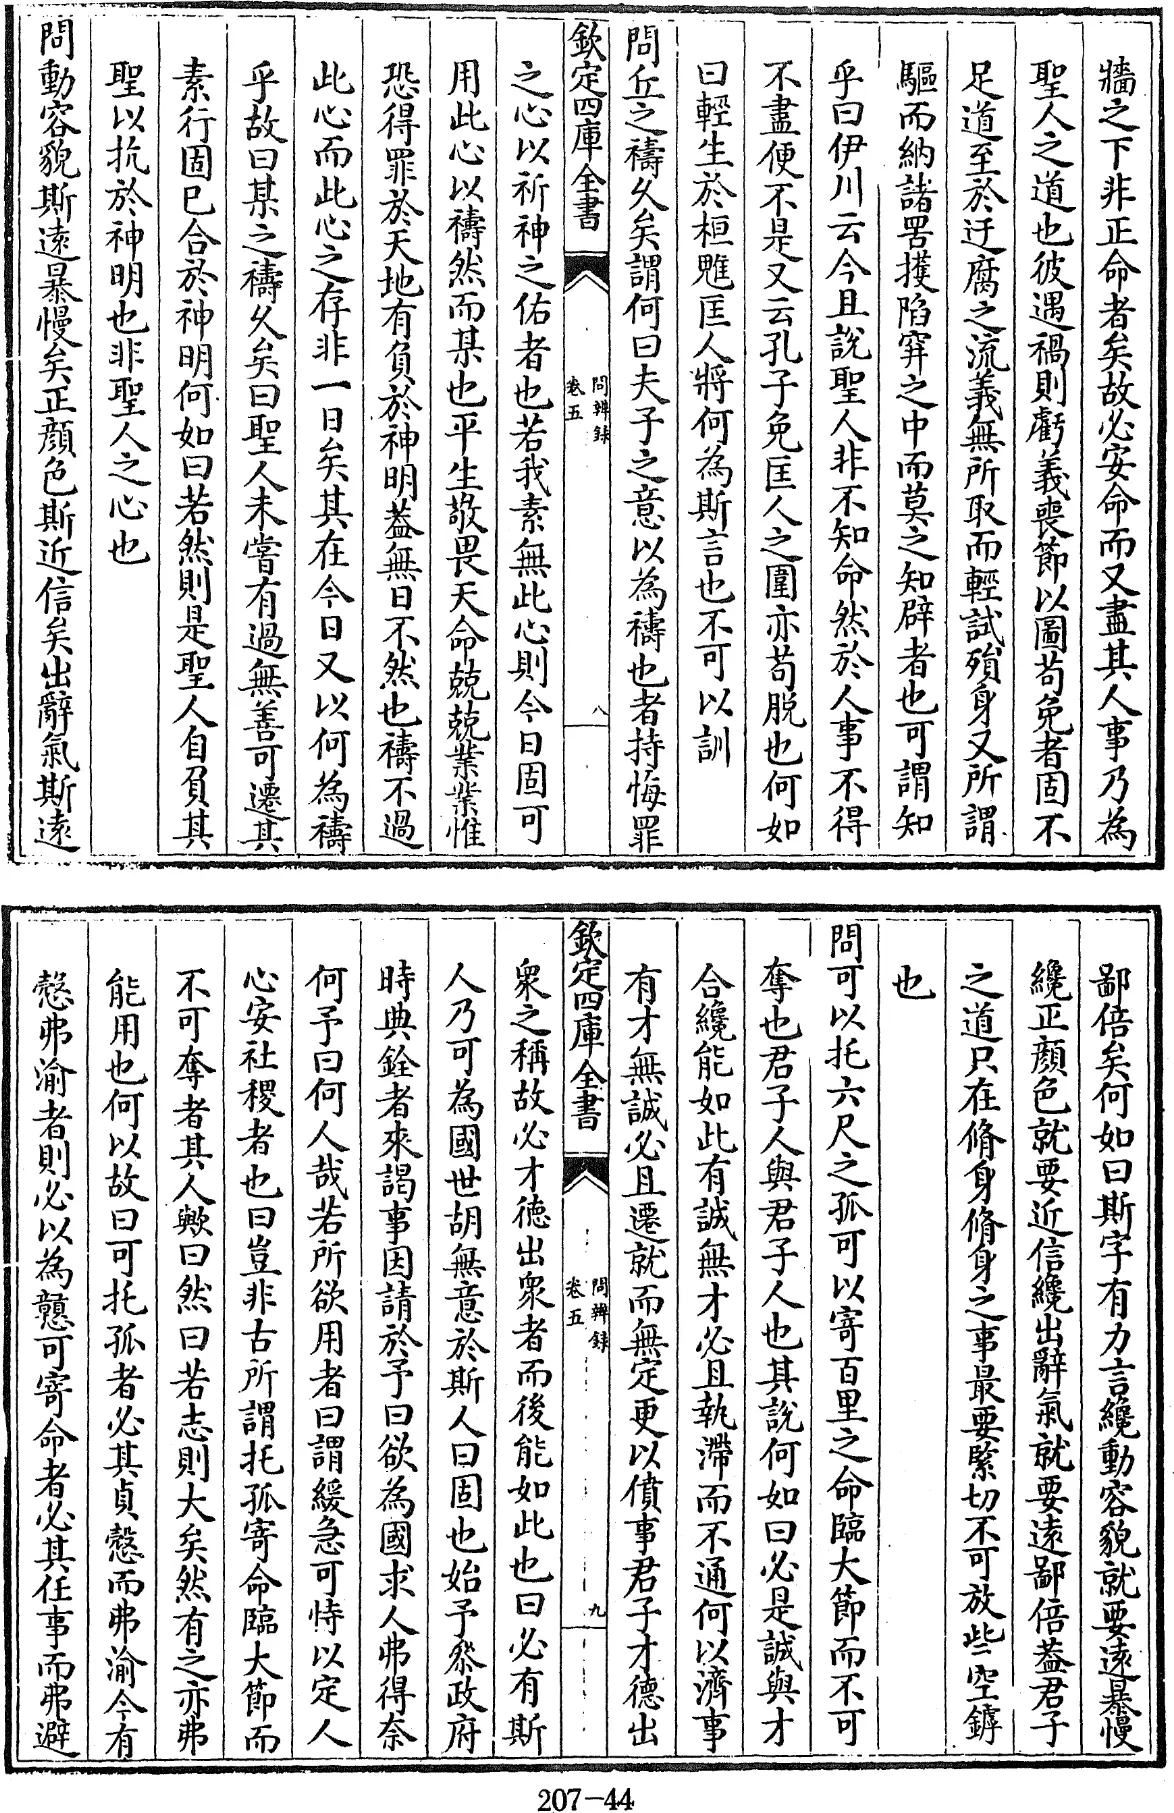 牆之下非正命者矣故必安命而又盡其人事乃為
聖人之道也彼遇禍則虧義喪節以圖茍免者固不
足道至於迂腐之流義無所取而輕試殞身又所謂
驅而納諸罟擭陷穽之中而莫之知辟者也可謂知
乎曰伊川云今且說聖人非不知命然於人事不得
不盡便不是又云孔子免匡人之圍亦茍脫也何如
曰輕生於桓魋匡人將何為斯言也不可以訓
問丘之禱久矣謂何曰夫子之意以為禱也者持悔罪
欽定四庫全書
問辨錄
卷五
八
之心以祈神之佑者也若我素無此心則今日固可
用此心以禱然而某也平生敬畏天命兢兢業業惟
恐得罪於天地有負於神明葢無日不然也禱不過
此心而此心之存非一日矣其在今日又以何為禱
乎故曰某之禱久矣曰聖人未嘗有過無善可遷其
素行固已合於神明何如曰若然則是聖人自負其
聖以抗於神明也非聖人之心也
問動容貌斯遠暴慢矣正顏色斯近信矣出辭氣斯遠
鄙倍矣何如曰斯字有力言纔動容貌就要遠暴慢
纔正顏色就要近信纔出辭氣就要遠鄙倍葢君子
之道只在脩身脩身之事最要緊切不可放些空罅
也
問可以托六尺之孤可以寄百里之命臨大節而不可
奪也君子人與君子人也其說何如曰必是誠與才
合纔能如此有誠無才必且執滯而不通何以濟事
有才無誠必且遷就而無定更以僨事君子才德出
欽定四庫全書
問辨錄
卷五
九
衆之稱故必才德出衆者而後能如此也曰必有斯
人乃可為國世胡無意於斯人曰固也始予叅政府
時典銓者來謁事因請於予曰欲為國求人弗得奈
何予曰何人哉若所欲用者曰謂緩急可恃以定人
心安社稷者也曰豈非古所謂托孤寄命臨大節而
不可奪者其人歟曰然曰若志則大矣然有之亦弗
能用也何以故曰可托孤者必其貞慤而弗渝今有
慤弗渝者則必以為戇可寄命者必其任事而弗避
207-44